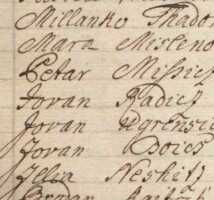 Millanko Thador
Mara Misleno
Petar Missics
Jovan Radics
Jovan Ugrensic
Jovan Boics
Illia Neskitz